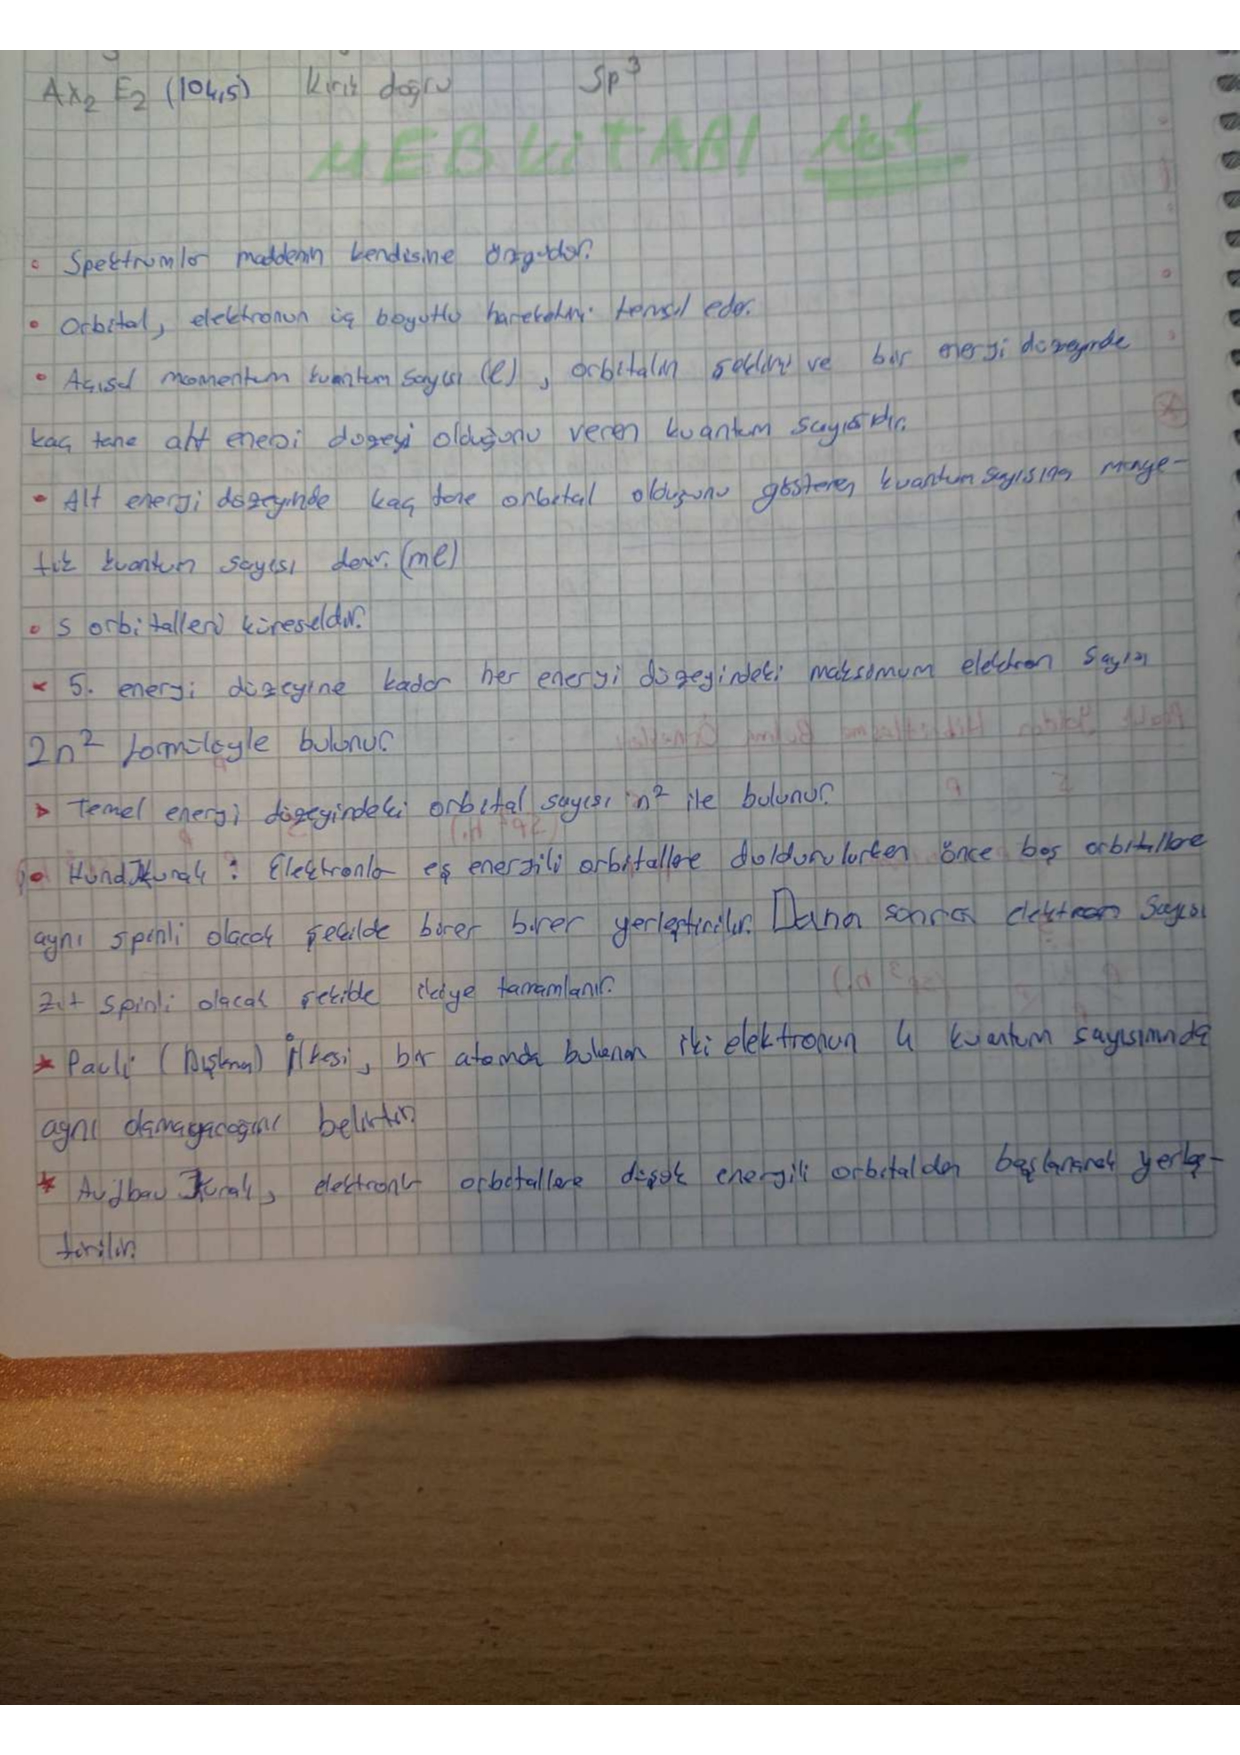 AX₂ E₂ (104,5) Kırık doğru Sp³
MEB KİTABI Not
• Spektrumlar maddenin kendisine özgüdür.
• Orbital, elektronun üç boyutlu hareketini temsil eder.
• Açısal momentum kuantum sayısı (l), orbitalin şeklini ve bir enerji düzeyinde
kaç tane alt enerji düzeyi olduğunu veren kuantum sayısıdır.
• Alt enerji düzeyinde kaç tane orbital olduğunu gösteren kuantum sayısına manye-
tik kuantum sayısı denir. (ml)
• s orbitalleri küreseldir.
• 5. energi düzeyine kadar her energi düzeyindeki maksimum elektron sayısı
2n² formülüyle bulunur.
• Temel energi düzeyindeki orbital sayısı n² ile bulunur.
• Hund Kuralı : Elektronlar eş enerjili orbitallere doldurulurken önce boş orbitallere
aynı spinli olacak şekilde birer birer yerleştirilir. Daha sonra elektron sayısı
zıt spinli olacak şekilde ikiye tamamlanır.
* Pauli (Dışlama) İlkesi, bir atomda bulunan iki elektronun 4 kuantum sayısınında
aynı olamayacağını belirtir.
* Aufbau Kuralı, elektronlar orbitallere düşük energili orbitalden başlanarak yerleş-
tirilir.